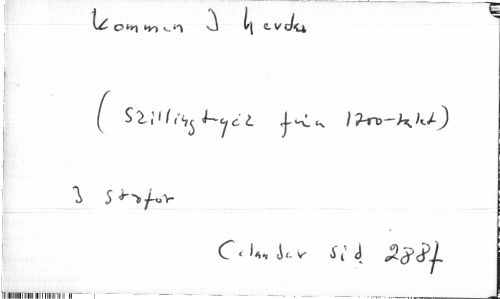 Kommen I herdar
(Skillingtryck från 1700-talet)
3 strofor
Celander sid. 288f